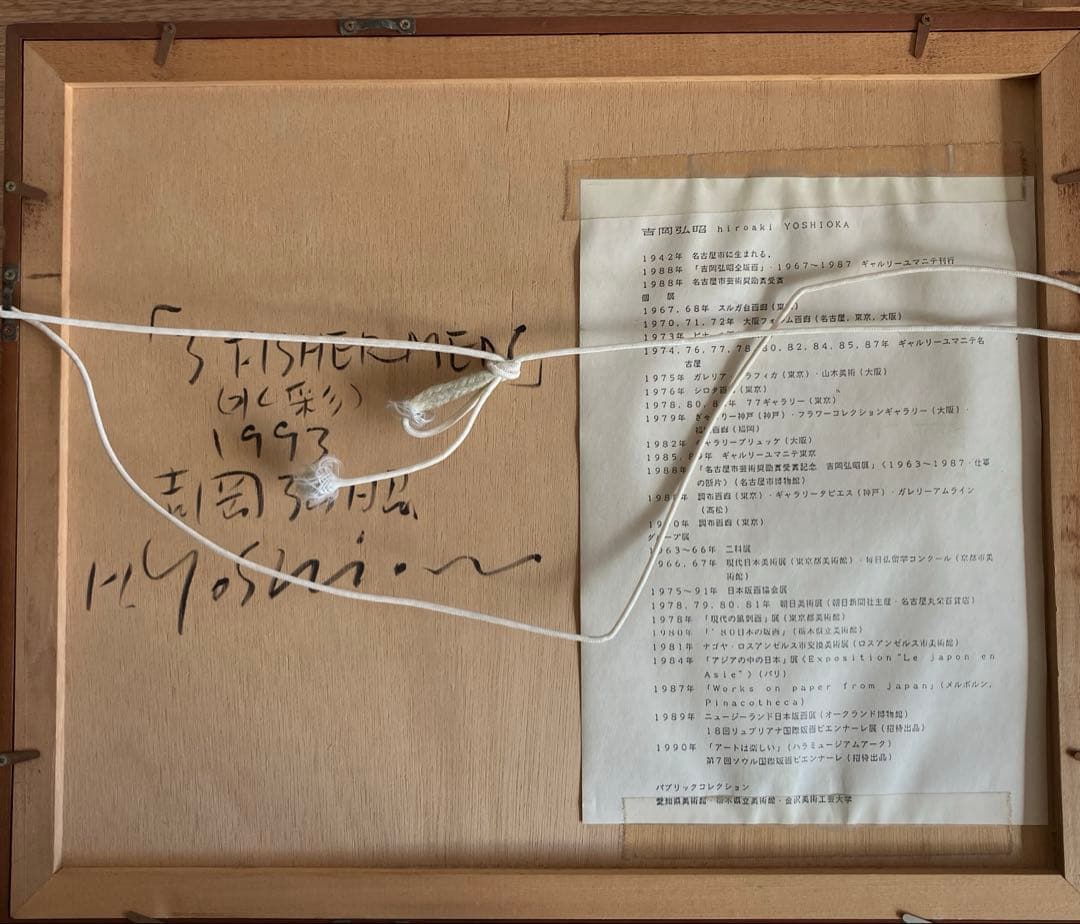 「3 FISHERMEN」
(水彩)
1993
吉岡弘昭
H.Yoshioka
吉岡弘昭 hiroaki YOSHIOKA
1942年 名古屋市に生まれる。
1988年 「吉岡弘昭全版画」・1967〜1987 ギャルリーユマニテ刊行
1988年 名古屋市芸術奨励賞受賞
個 展
1967,68年 スルガ台画廊(東京)
1970,71,72年 大阪フォルム画廊(名古屋,東京,大阪)
1973年
1974,76,77,78,80,82,84,85,87年 ギャルリーユマニテ名
古屋
1975年 ガレリア・グラフィカ(東京)・山木美術(大阪)
1976年 シロタ画廊(東京)
1978,80, 年 77ギャラリー(東京)
1979年 ギャラリー神戸(神戸)・フラワーコレクションギャラリー(大阪)・
画廊(福岡)
1982年 ギャラリーブリュッケ(大阪)
1985,89年 ギャルリーユマニテ東京
1988年 「名古屋市芸術奨励賞受賞記念 吉岡弘昭展」(1963〜1987・仕事
の断片)(名古屋市博物館)
調布画廊(東京)・ギャラリータピエス(神戸)・ガレリーアムライン
(高松)
1990年 調布画廊(東京)
グループ展
1963〜66年 二科展
1966,67年 現代日本美術展(東京都美術館)・毎日仏留学コンクール(京都市美
術館)
1975〜91年 日本版画協会展
1978,79,80,81年 朝日美術展(朝日新聞社主催・名古屋丸栄百貨店)
1978年 「現代の諷刺画」展(東京都美術館)
1980年 「'80日本の版画」(栃木県立美術館)
1981年 ナゴヤ・ロスアンゼルス市交換美術展(ロスアンゼルス市美術館)
1984年 「アジアの中の日本」展(Exposition"Le japon en
Asie")(パリ)
1987年 「Works on paper from japan」(メルボルン,
Pinacotheca)
1989年 ニュージーランド日本版画展(オークランド博物館)
18回リュブリアナ国際版画ビエンナーレ展(招待出品)
1990年 「アートは楽しい」(ハラミュージアムアーク)
第7回ソウル国際版画ビエンナーレ(招待出品)
パブリックコレクション
愛知県美術館・栃木県立美術館・金沢美術工芸大学